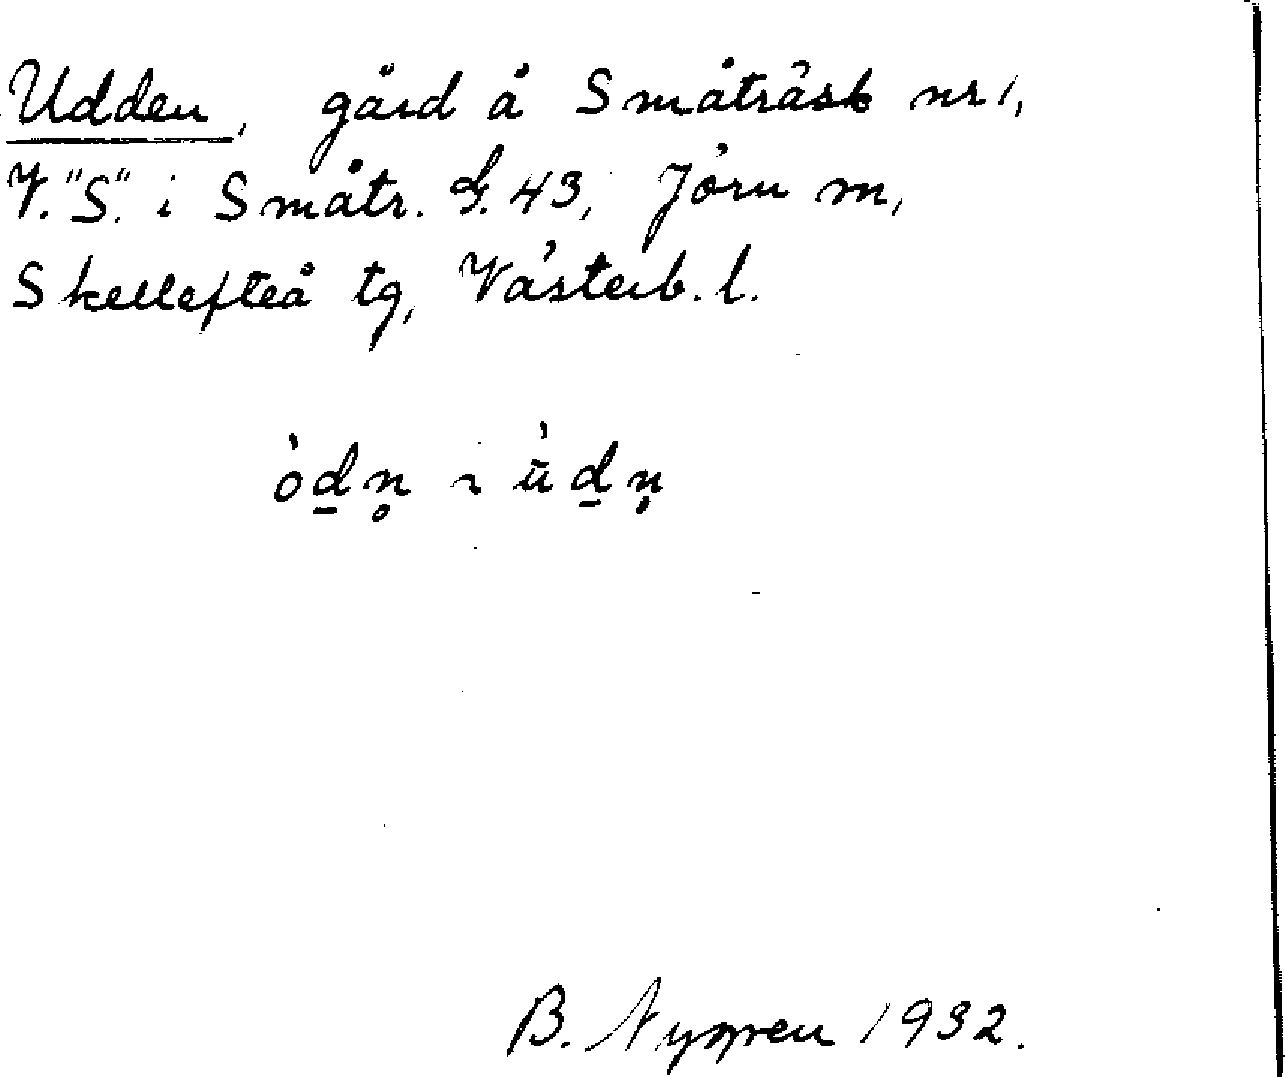 Udden, gård å Småträsk nr 1,
V. "S." i Småtr. G. 43, Jörn m,
Skellefteå tg, Västerb. l.
òd̲n̥ ~ ùd̲ṇ
B. 1932.